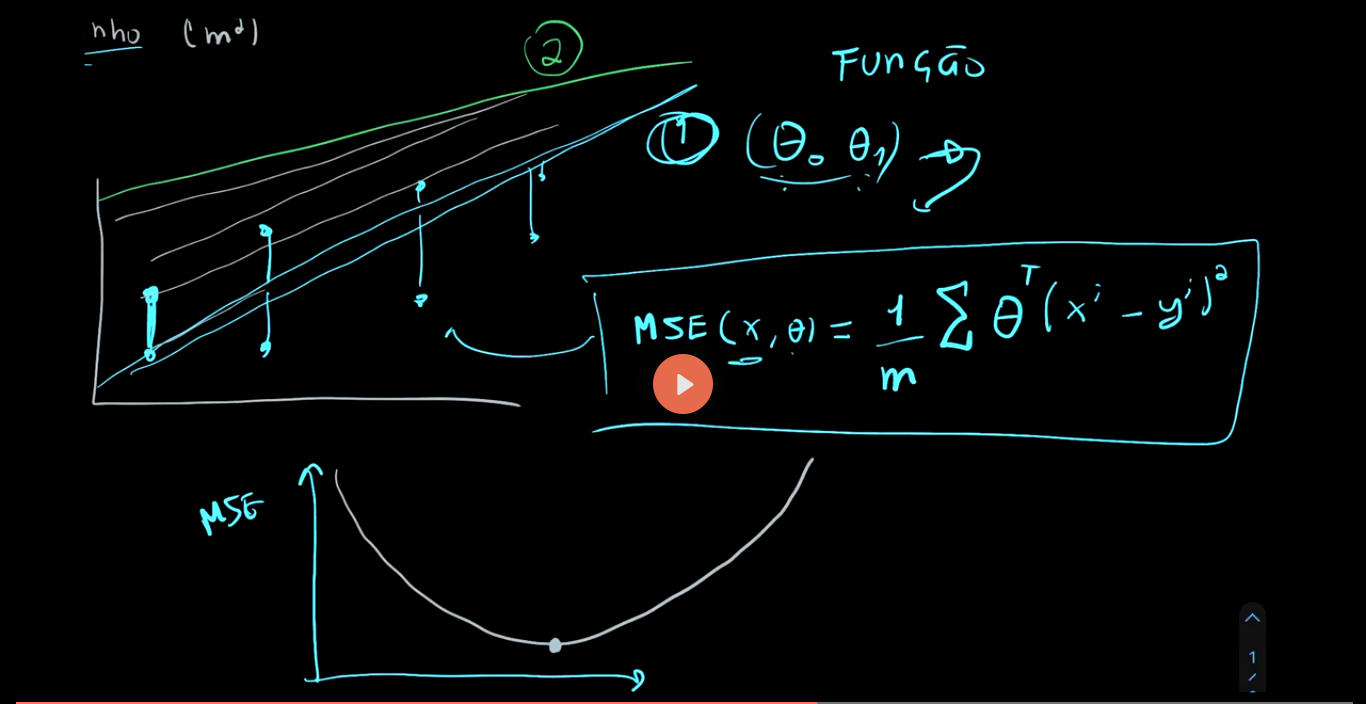 nho (m²)
2
Função
1 (θ₀ θ₁)
MSE (x, θ) = 1/m Σ θᵀ (xⁱ - yⁱ)²
MSE
1